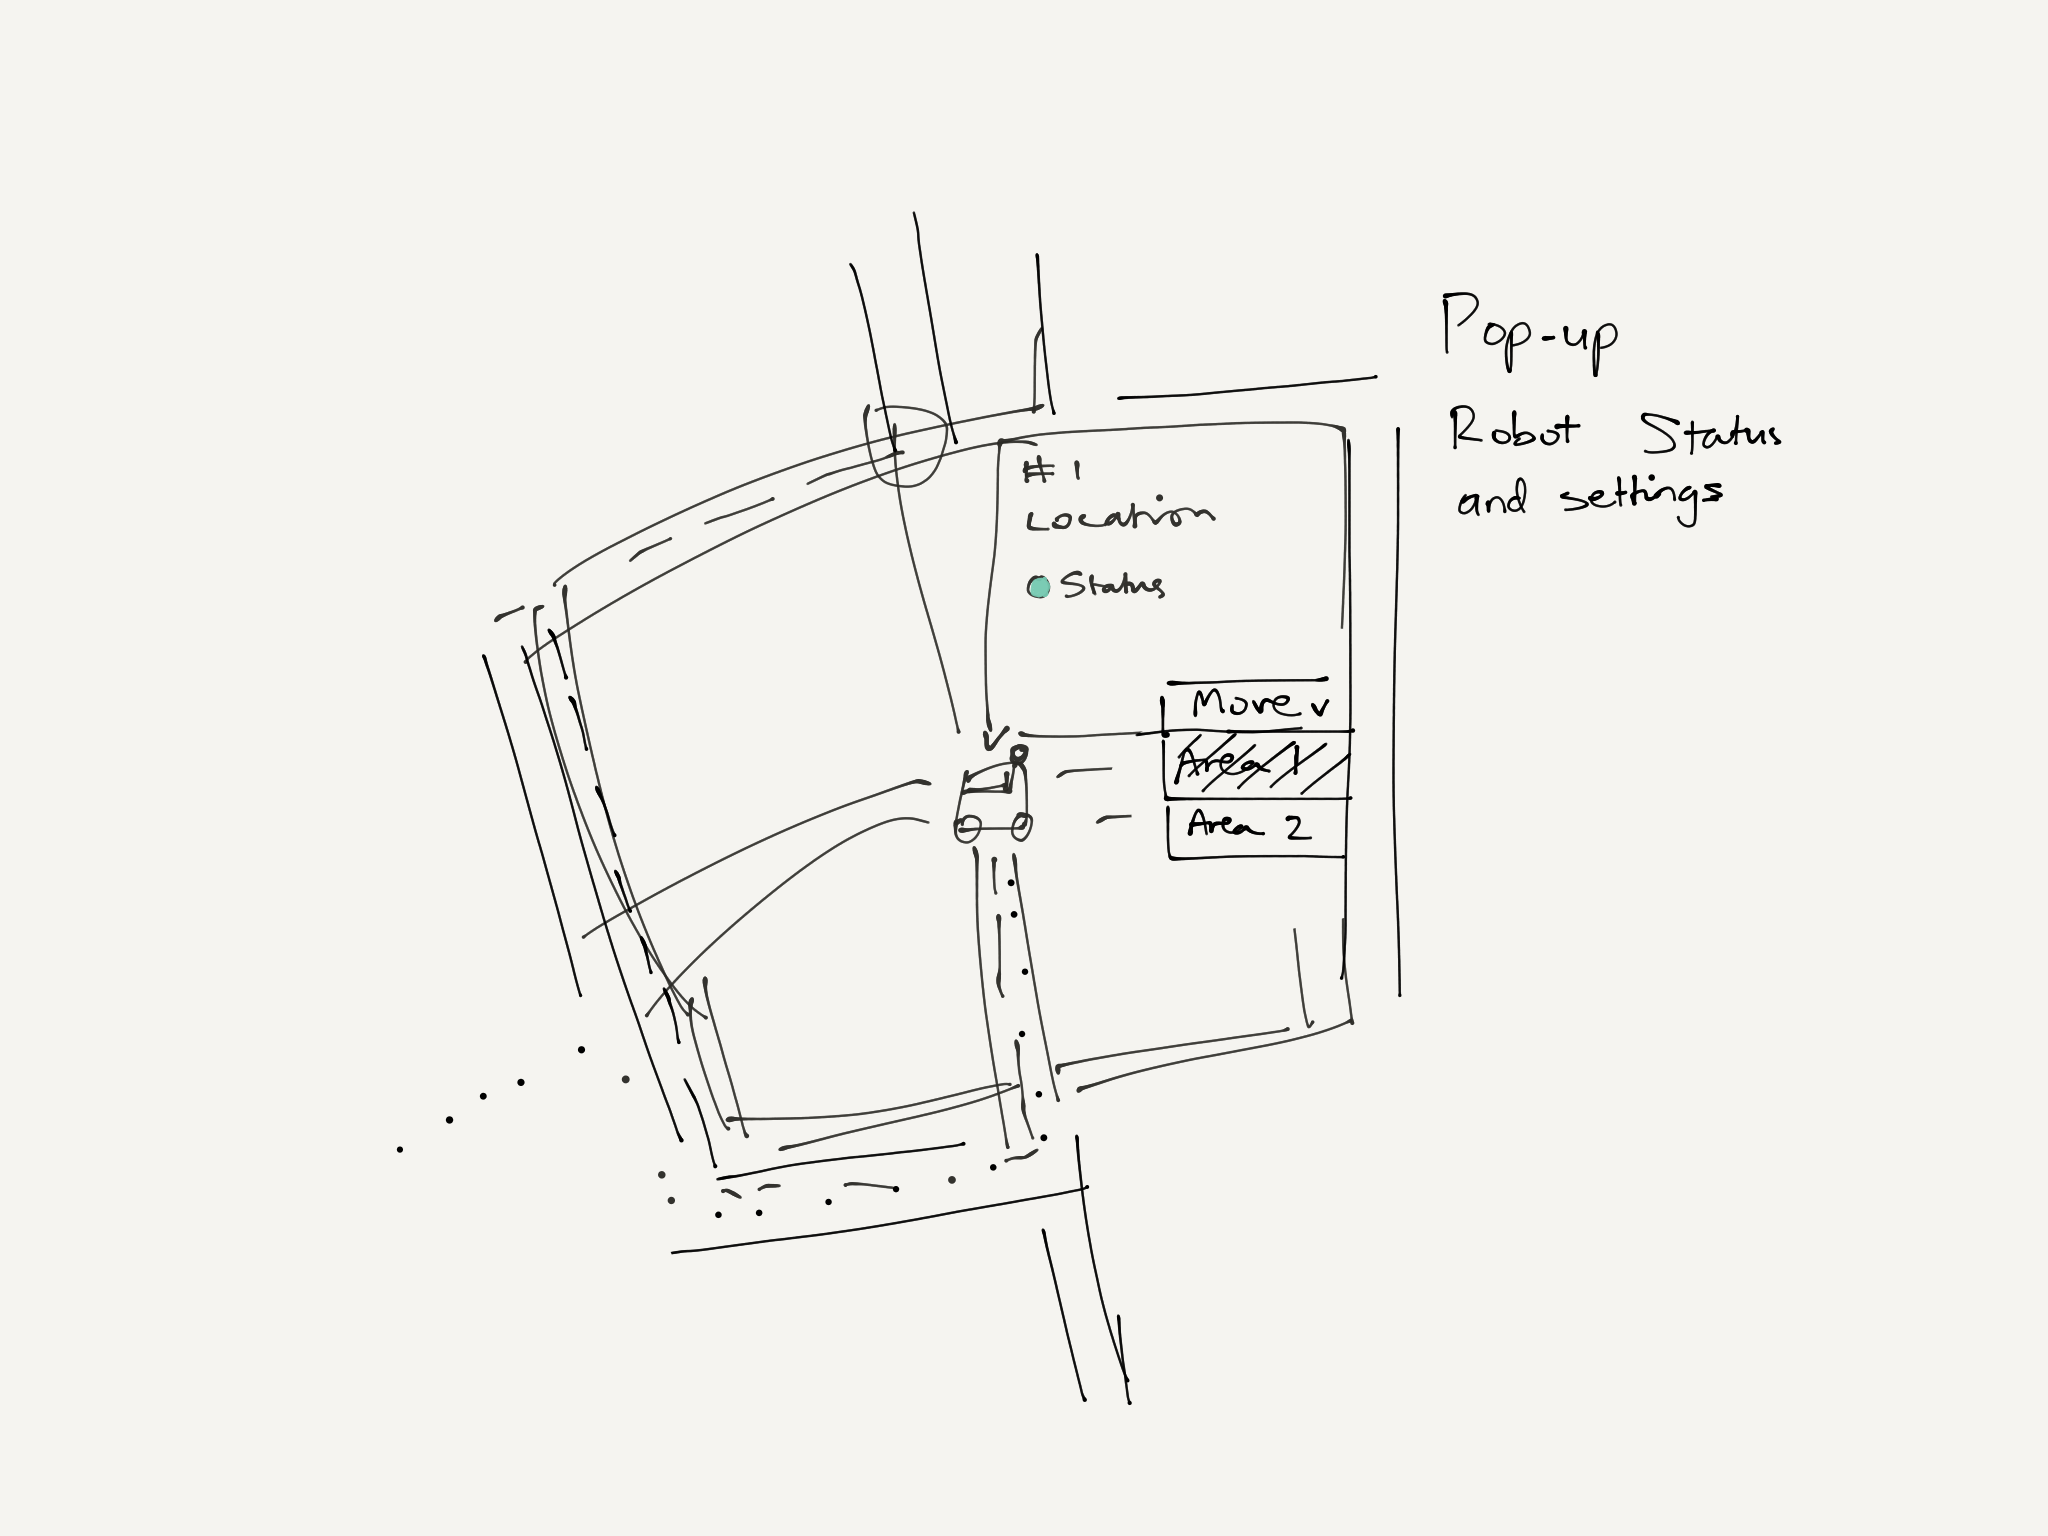 Pop-up
Robot Status
and settings
#1
Location
Status
Move v
Area 1
Area 2